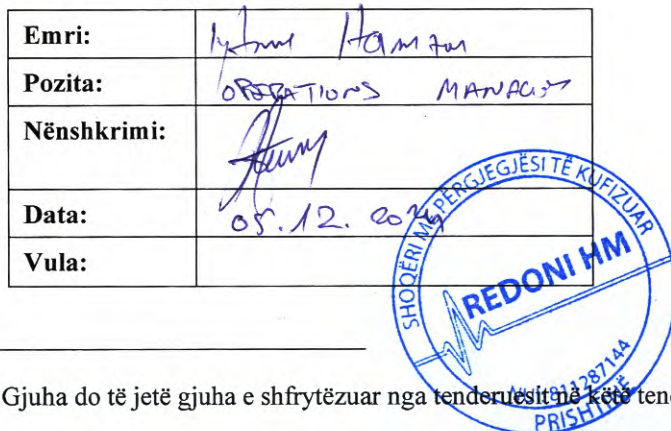 Emri:
Pozita: OPERATIONS MANAGER
Nënshkrimi:
Data: 05.12.
Vula:
SHOQËRI ME PËRGJEGJËSI TË KUFIZUAR
REDONI HM
NUI: 811287144
PRISHTINË
Gjuha do të jetë gjuha e shfrytëzuar nga tenderuesit në këtë